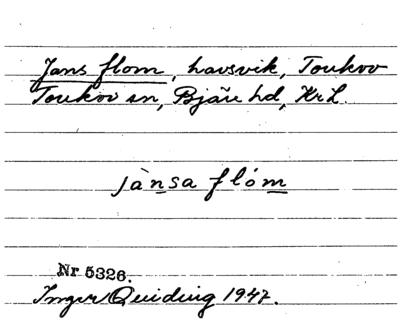 Jans flom, havsvik, Torekov
Torekov sn, Bjäre hd, Kr L.
jànsa flóm
Nr 5326.
Inger Quiding 1947.